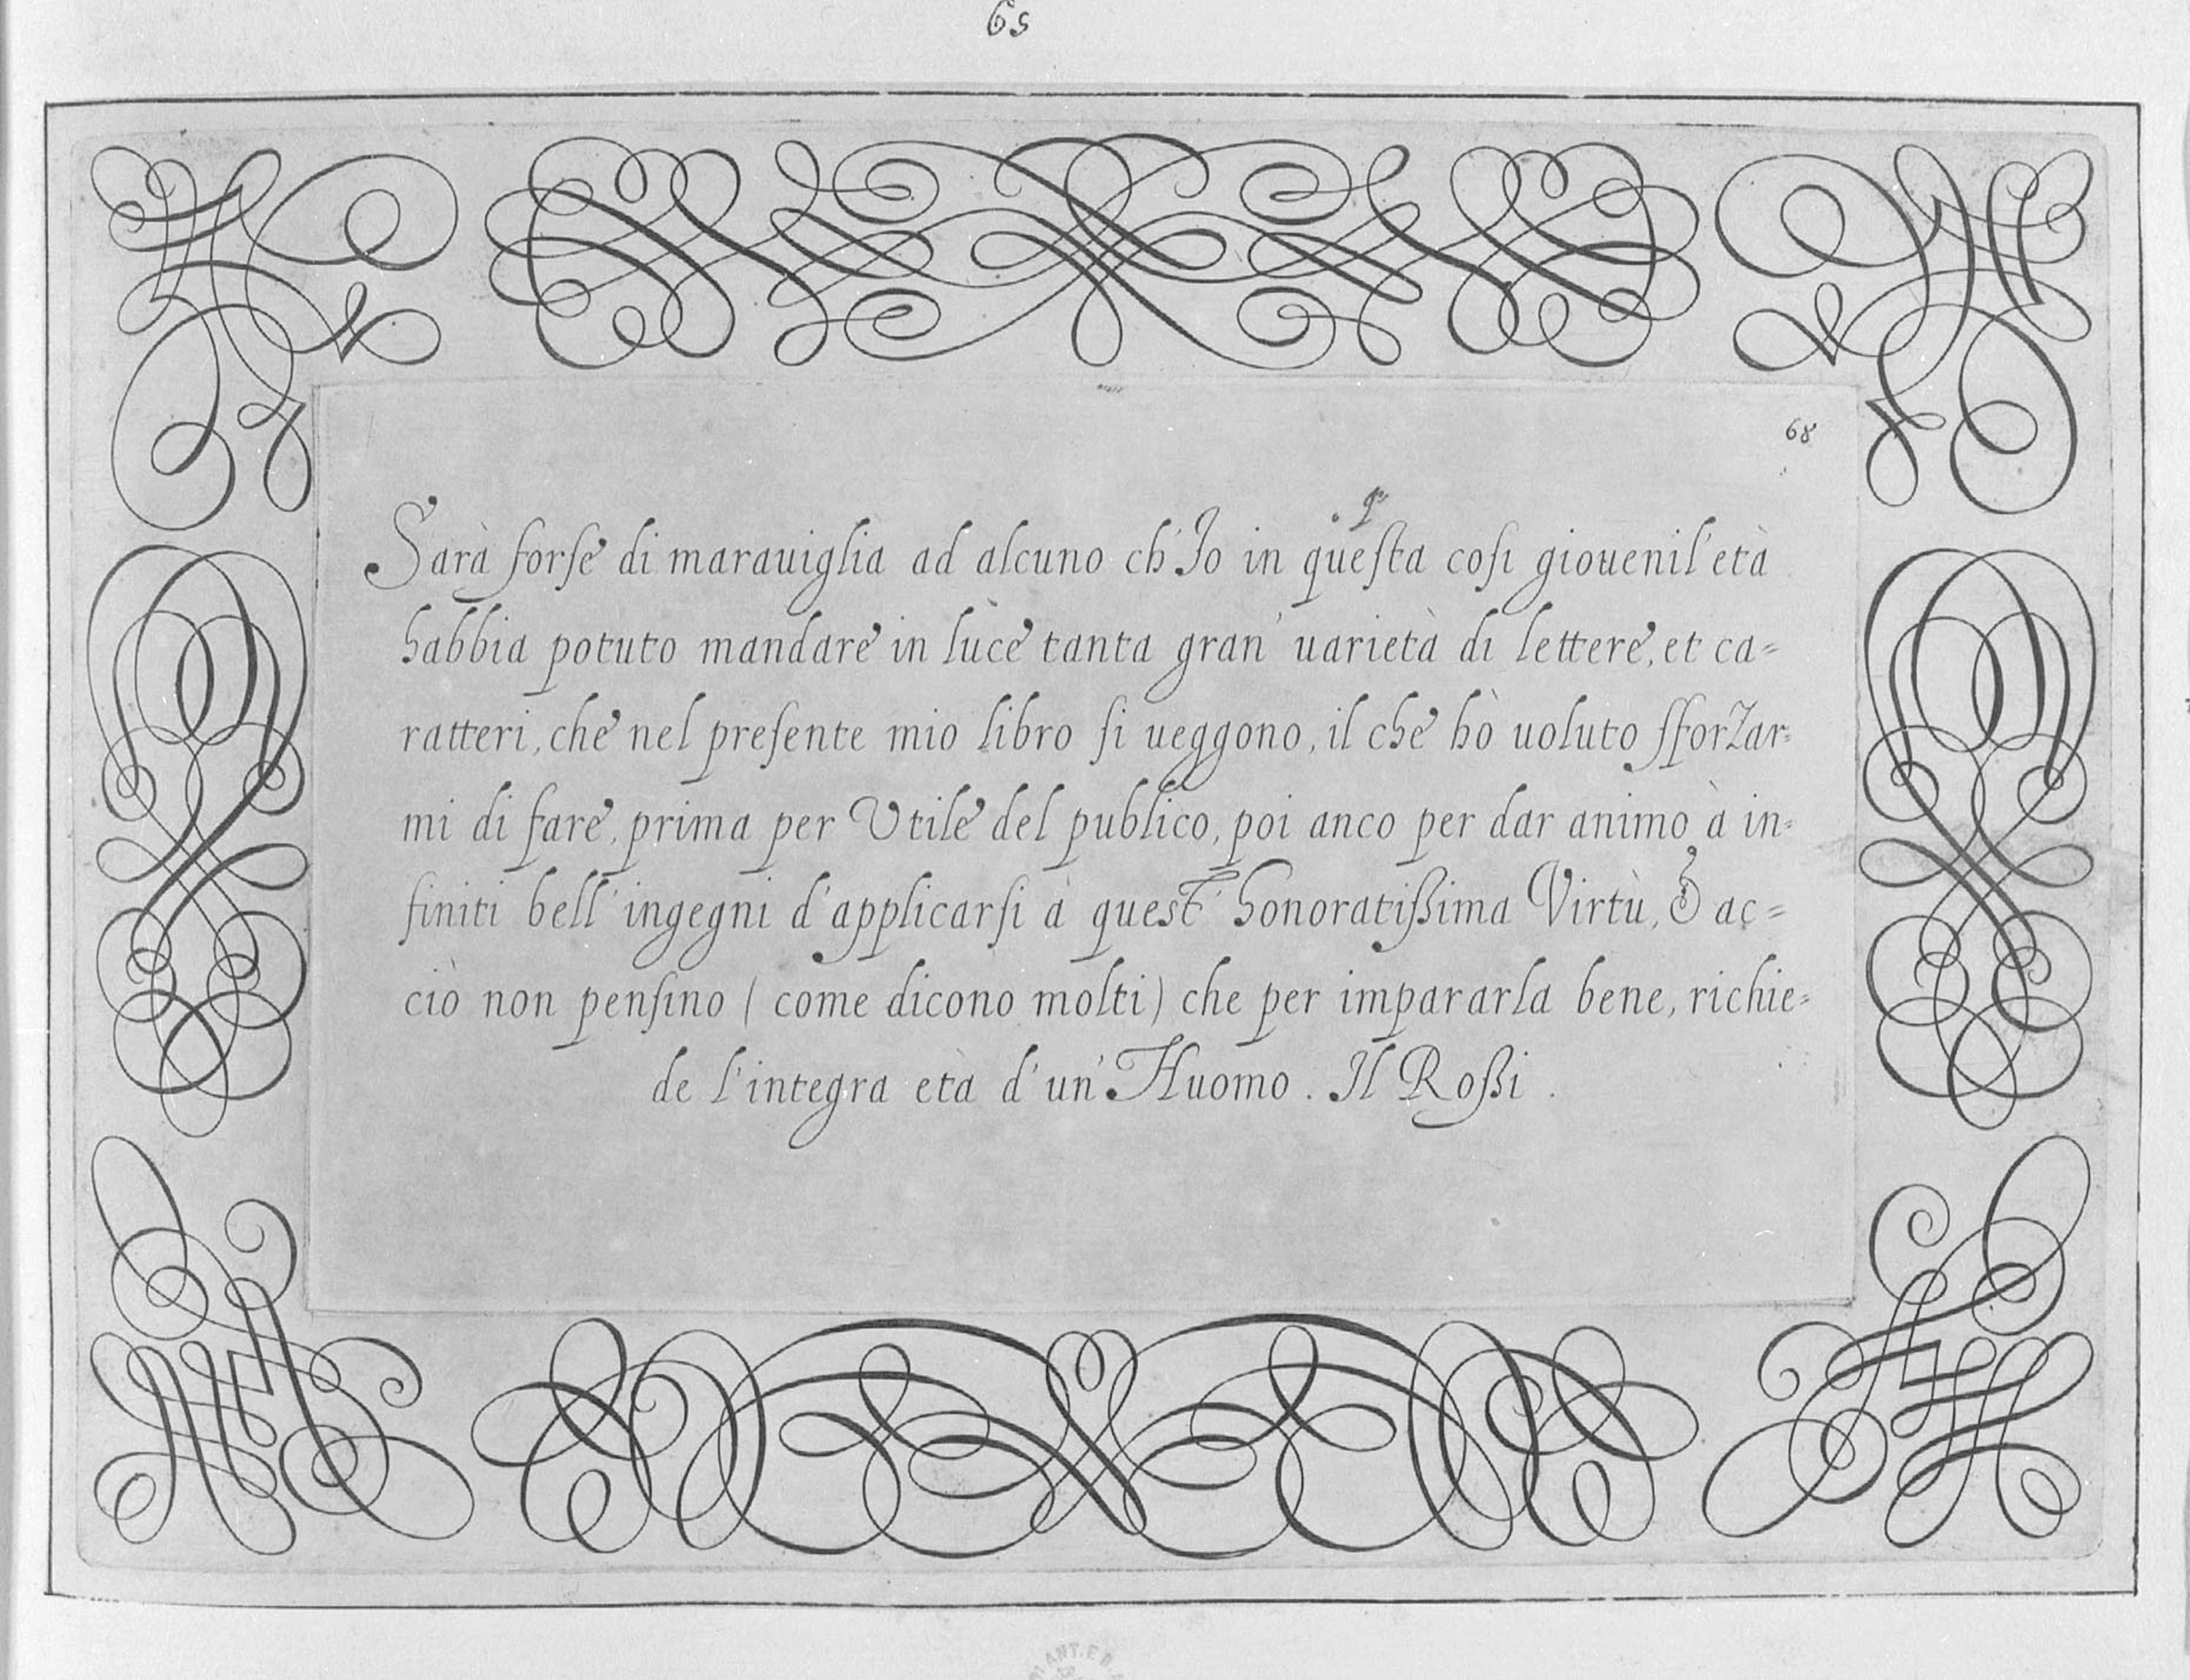 65
68
Sarà forse di marauiglia ad alcuno ch'Io in questa cosi giouenil'età
habbia potuto mandare in luce tanta gran' uarietà di lettere, et ca=
ratteri, che nel presente mio libro si ueggono, il che hò uoluto sforzar=
mi di fare, prima per Utile del publico, poi anco per dar animo à in=
finiti bell'ingegni d'applicarsi à quest' honoratißima Virtù, & ac=
ciò non pensino (come dicono molti) che per impararla bene, richie=
de l'integra età d'un' Huomo. Il Roßi.